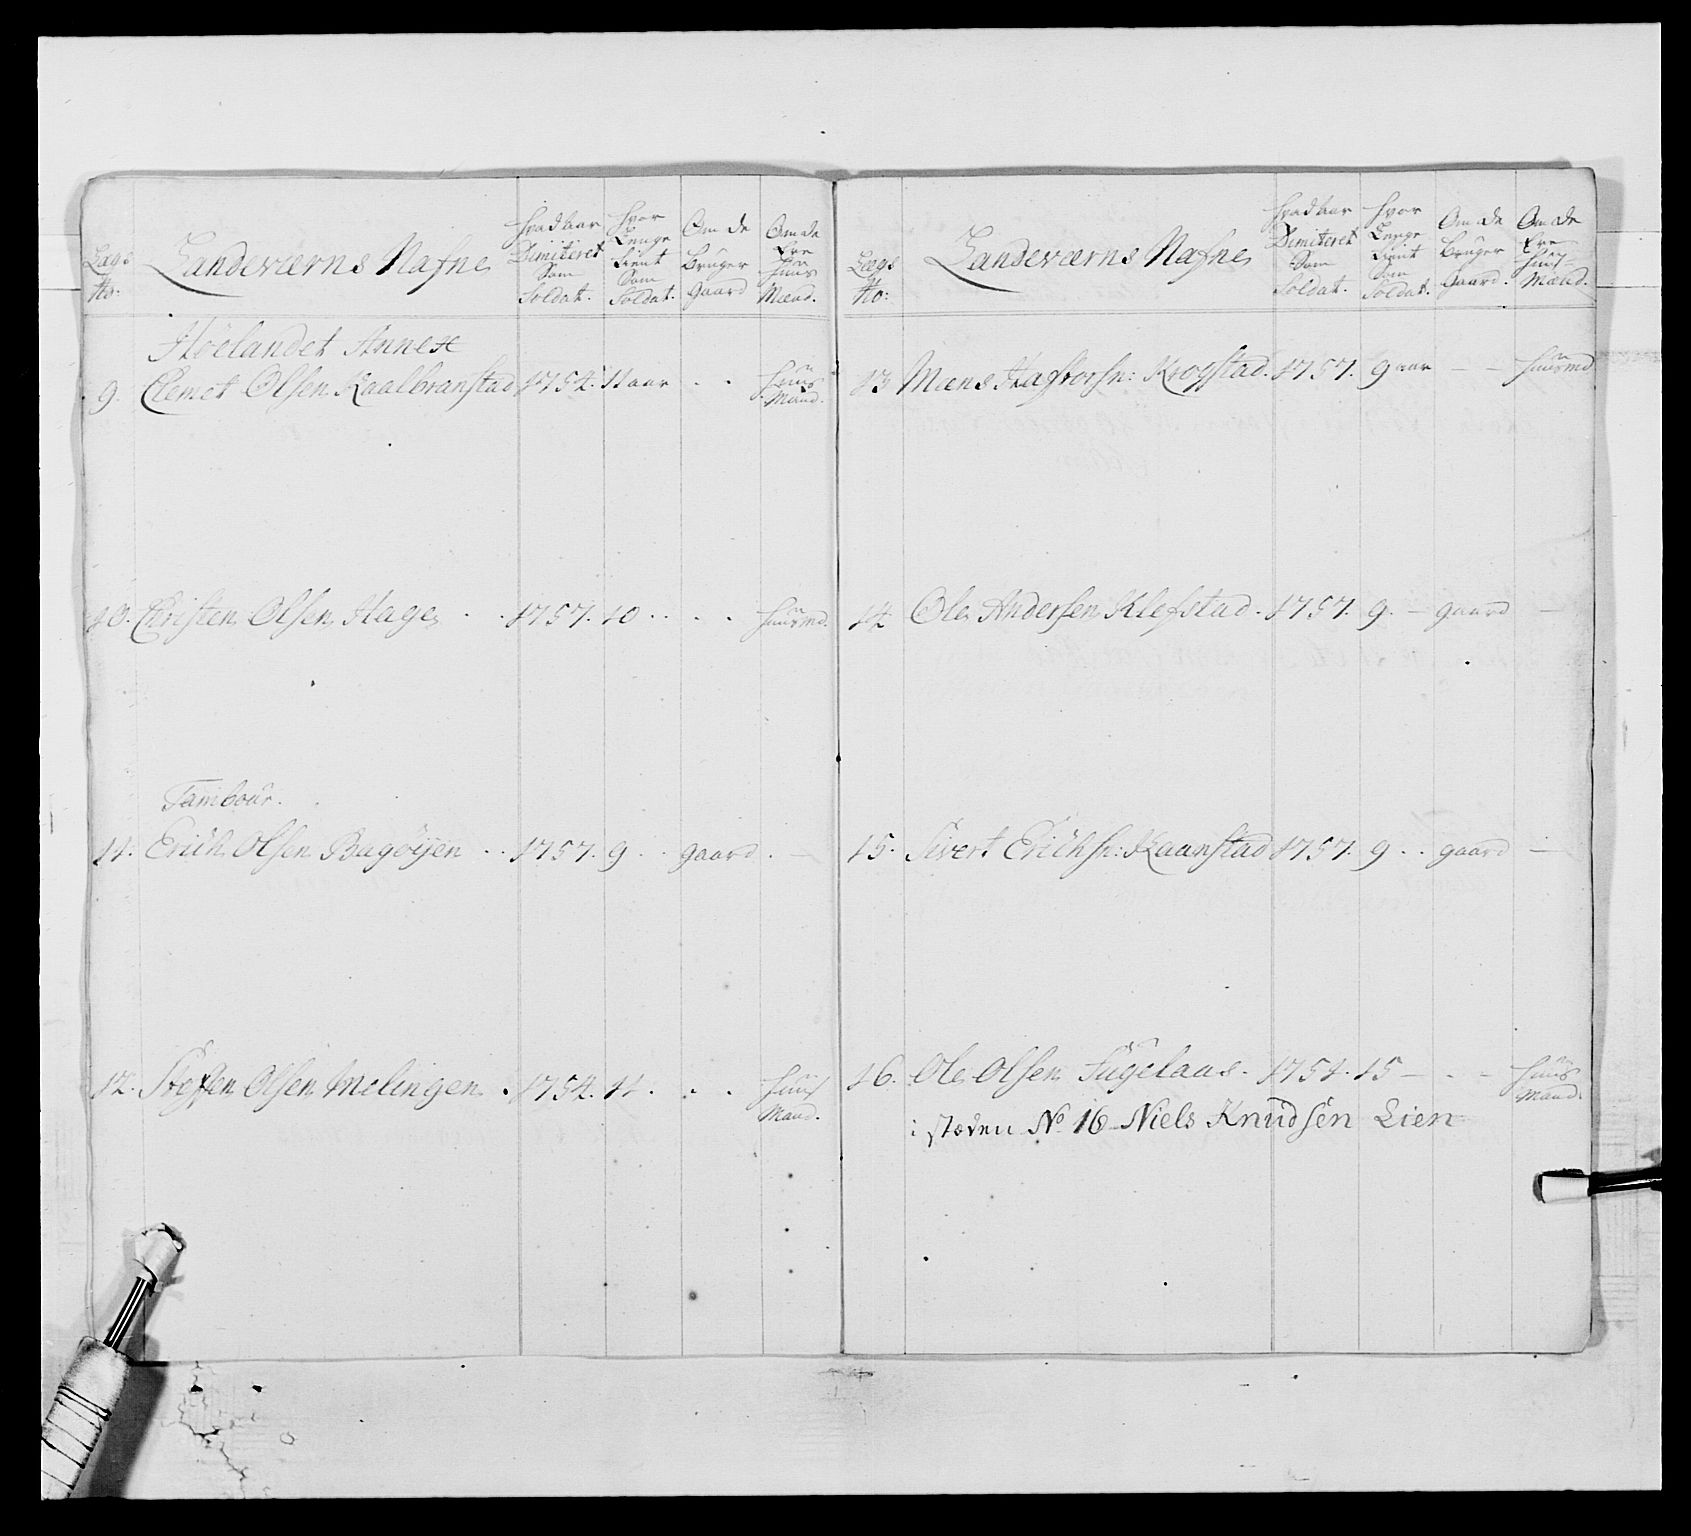 Lægs No: Landeværns Nafne Hvad aar Dimiteret Som Soldat. Hvor Lenge Tient Som Soldat. Om de Bruger Gaard Om de Ere Huus Mænd.
Höelandet Annex
9. Clemet Olsen Kaalbranstad 1754. 11 aar . . Huus Mand.
10. Christen Olsen Hage . . 1757. 10 . . . . Huusmd.
Tambour.
11. Erich Olsen Bagöijen . . 1757. 9 . . gaard . —
12. Steffen Olsen Melingen . 1754. 11 . . . Huus Mand.
Lægs No: Landeværns Nafne Hvad aar Dimiteret Som Soldat. Hvor Lenge Tient Som Soldat. Om de Bruger Gaard. Om de Ere Huus- Mænd.
13 Mæns Hafvorsn: Krogstad. 1757. 9 aar — — Huusmd
14 Ole Andersen Klefstad. 1757. 9. — gaard —
15. Sivert Erichsn: Kaanstad 1757. 9 . . gaard —
16. Ole Olsen Fugelaas. 1751. 15 — . — Huus Mand.
i stæden No 16 Niels Knudsen Lien